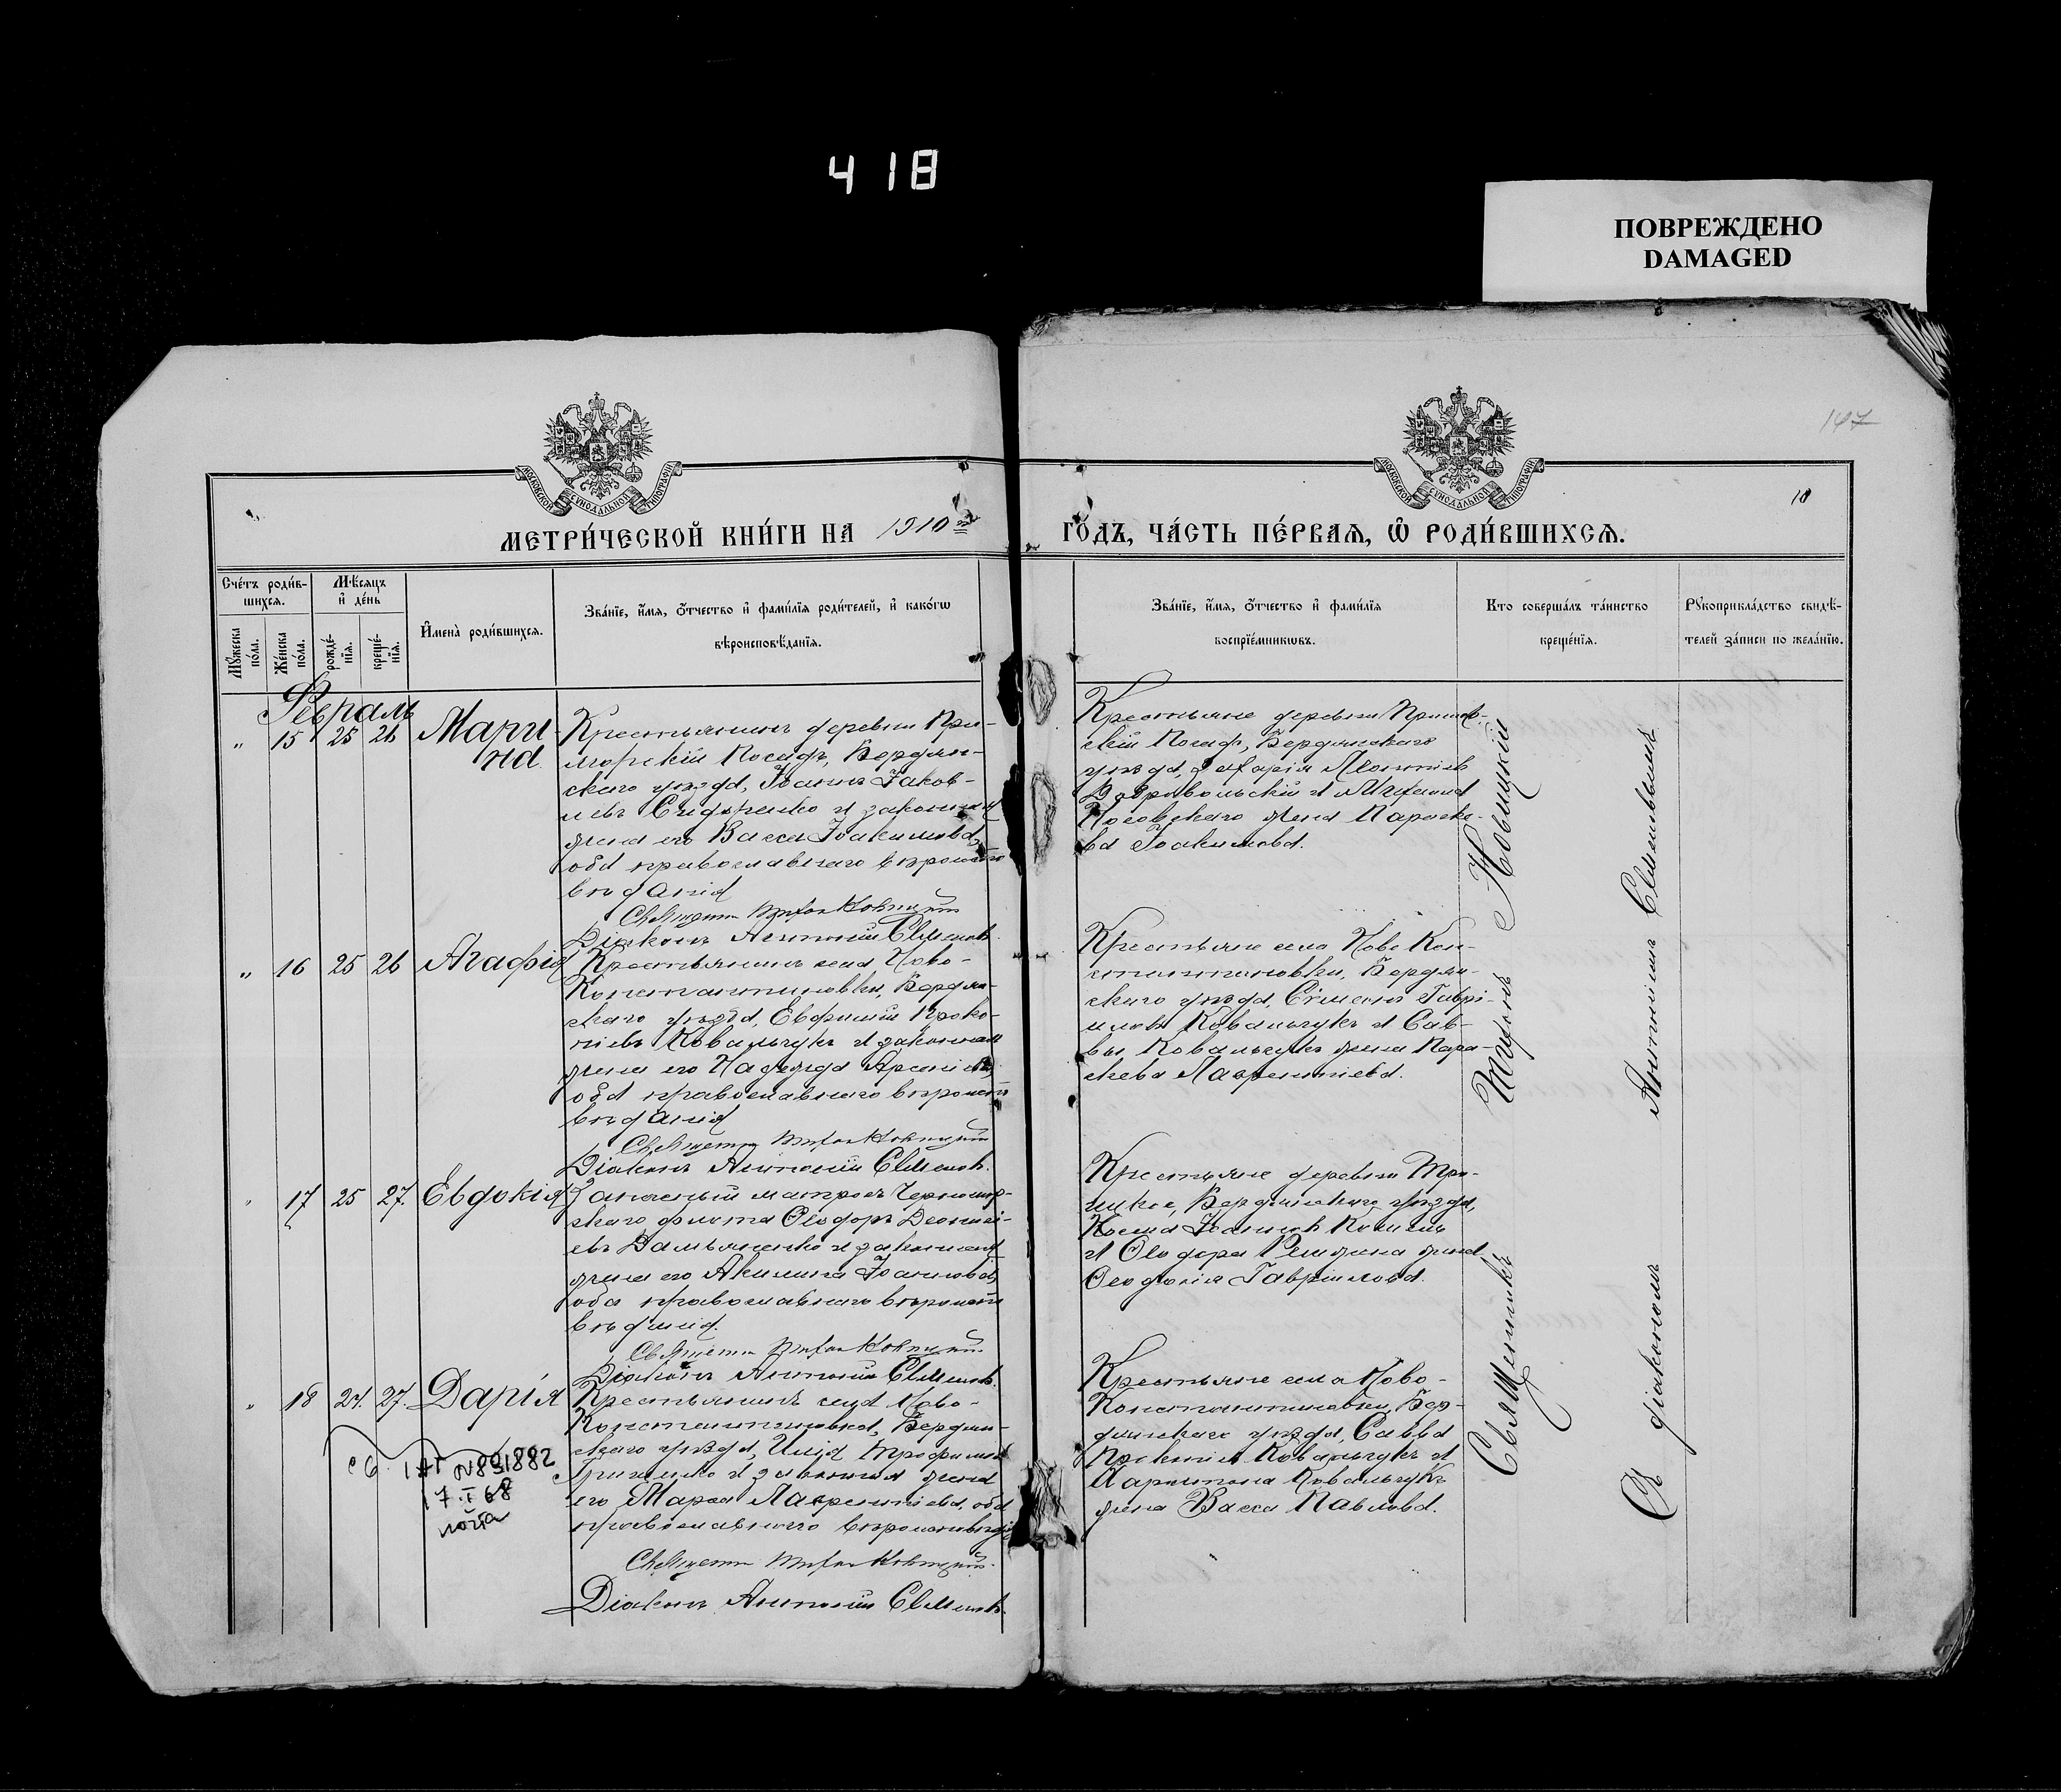 418
ПОВРЕЖДЕНО
DAMAGED
147
МОСКОВСКОЙ СѴНОДАЛЬНОЙ ТИПОГРАФІИ
МОСКОВСКОЙ СѴНОДАЛЬНОЙ ТИПОГРАФІИ
10
МЕТРИ́ЧЕСКОЙ КНИ́ГИ НА 1910 ГО́ДЪ, ЧА́СТЬ ПЕ́РВАѦ, Ѡ҆ РОДИ́ВШИХСѦ.
Сче́тъ роди́в-
шихсѧ.
Мꙋ́жеска по́ла.
Же́нска по́ла.
Мѣ́сѧцъ
и҆ де́нь
рожде́-
нїѧ.
креще́-
нїѧ.
И҆мена̀ роди́вшихсѧ.
Зва́нїе, и҆́мѧ, ѻ҆́тчество и҆ фами́лїѧ роди́телей, и҆ како́гѡ
вѣроисповѣ́данїѧ.
Зва́нїе, и҆́мѧ, ѻ҆́тчество и҆ фами́лїѧ
воспрїе́мникѡвъ.
Кто соверша́лъ та́инство
креще́нїѧ.
Рꙋкоприкла́дство свидѣ́-
телей за́писи по жела́нїю.
Февраль
" 15 25 26 Мари-
на
Крестьянинъ деревни При-
морскій Посадъ, Бердян-
скаго уѣзда, Іоаннъ Іаков-
левъ Сидоренко и законная
жена его Васса Іоакимова,
оба православнаго вѣроиспо-
вѣданія
Священн Тихон Новицкій
Діаконъ Антоній Семенов.
Крестьяне деревни Примор-
скій Посадъ, Бердянскаго
уѣзда, Захарія Леонтіев
Добровольскій и
жена Параске-
ва Іоакимова.
" 16 25 26 Агафія
Крестьянинъ села Ново-
Константиновки, Бердян-
скаго уѣзда, Евфимій Проко-
піевъ Ковальчукъ и законная
жена его Надежда Арсеніева,
оба православнаго вѣроиспо-
вѣданія
Священн Тихон Новицкій
Діаконъ Антоній Семенов.
Крестьяне села Ново Кон-
стантиновки, Бердян-
скаго уѣзда, Симеонъ Гаврі-
иловъ Ковальчукъ и Сав-
вы Ковальчукъ жена Пара-
скева Лаврентіева.
" 17 25 27. Евдокія
Запасный матросъ Черномор-
скаго флота Ѳеодоръ Діонисі-
евъ Дамьяненко и законная
жена его Акилина Іоаннова,
оба православнаго вѣроиспо-
вѣданія.
Священн Тихон Новицкій
Діаконъ Антоній Семенов.
Крестьяне деревни Тро-
ицкое, Бердянскаго уѣзда,
Косма Іоаннов
и Ѳеодора жена
Ѳеодосія Гавріилова.
" 18 24. 27. Дарія
Крестьянинъ села Ново-
Константиновка, Бердян-
скаго уѣзда, Илія Трофимов
Гриценко и законная жена
его Марѳа Лаврентіева, оба
православнаго вѣроисповѣд
Священн Тихон Новицкій.
Діаконъ Антоній Семенов.
Крестьяне села Ново-
Константиновки, Бер-
дянскаго уѣзда, Савва
Прокопіев Ковальчукъ и
Харитона Ковальчукъ
жена Васса Павлова.
св. IАП №891882
17.I 68
почта
Священникъ Тихонъ Новицкій
Съ діакономъ Антоніемъ Семеновымъ